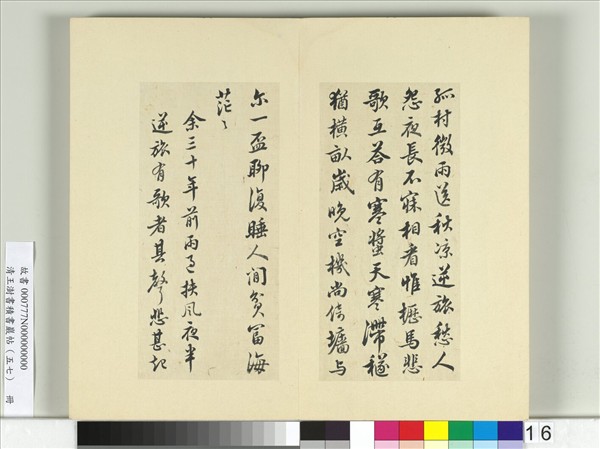 孤村微雨送秋凉逆旅愁人
怨夜長不寐相看惟櫪馬悲
歌互荅有寒螿天寒滯穟
猶橫畝歲晚空機尚倚墻与
尔一盃聊復睡人間貧富海
茫〻
余三十年前雨過扶風夜半
逆旅有歌者其聲悲甚起
故書000777N000000000
清王澍書積書巖帖(五七) 冊
16